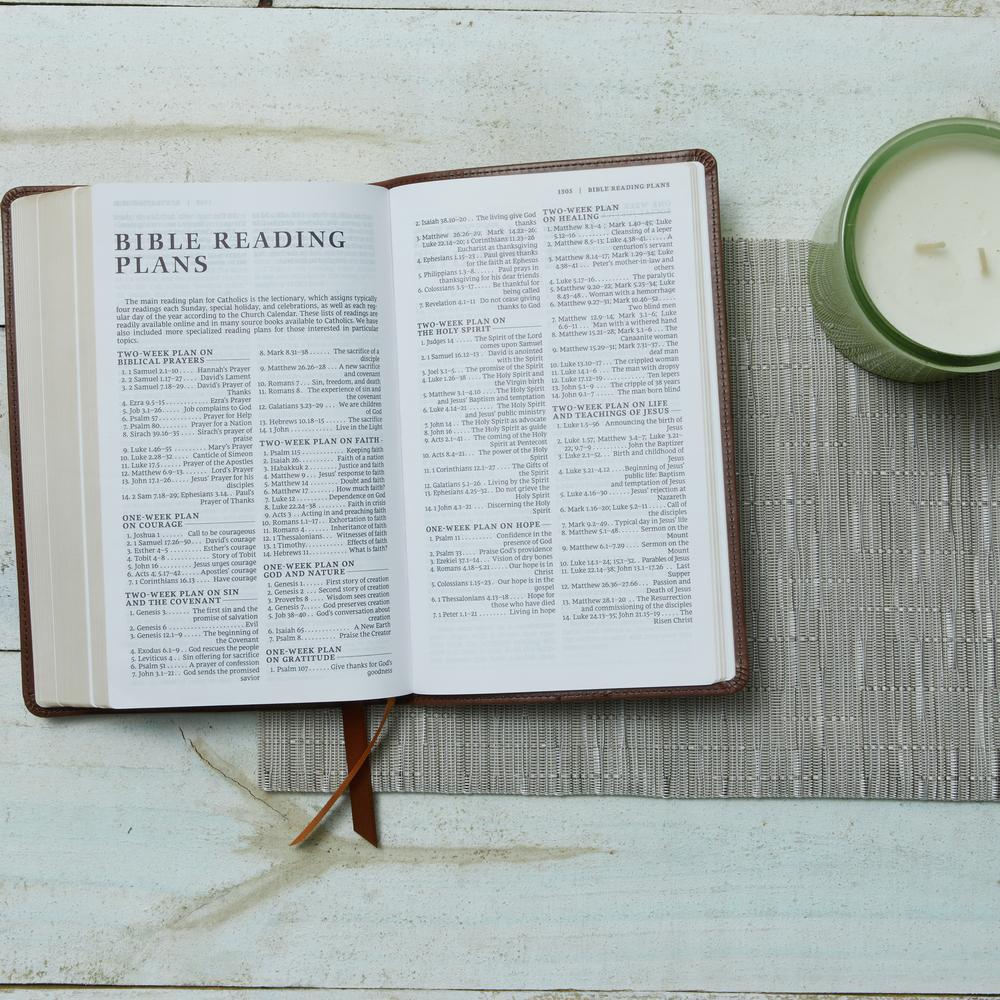 BIBLE READING
PLANS
The main reading plan for Catholics is the lectionary, which assigns typically
four readings each Sunday, special holiday, and celebrations, as well as each reg-
ular day of the year according to the Church Calendar. These lists of readings are
readily available online and in many source books available to Catholics. We have
also included more specialized reading plans for those interested in particular
topics.
TWO-WEEK PLAN ON
BIBLICAL PRAYERS
1. 1 Samuel 2.1–10 . . . . . Hannah's Prayer
2. 2 Samuel 1.17–27 . . . . David's Lament
3. 2 Samuel 7.18–29 . . . David's Prayer of
Thanks
4. Ezra 9.5–15 . . . . . . . . Ezra's Prayer
5. Job 3.1–26 . . . . . Job complains to God
6. Psalm 57 . . . . . . . . . Prayer for Help
7. Psalm 80 . . . . . . . Prayer for a Nation
8. Sirach 39.16–35 . . . . Sirach's prayer of
praise
9. Luke 1.46–55 . . . . . . . Mary's Prayer
10. Luke 2.28–32 . . . . Canticle of Simeon
11. Luke 17.5 . . . . Prayer of the Apostles
12. Matthew 6.9–13 . . . . . Lord's Prayer
13. John 17.1–26 . . . . Jesus' Prayer for his
disciples
14. 2 Sam 7.18–29; Ephesians 3.14 . . Paul's
Prayer of Thanks
ONE-WEEK PLAN
ON COURAGE
1. Joshua 1 . . . . . Call to be courageous
2. 1 Samuel 17.26–50 . . . David's courage
3. Esther 4–5 . . . . . . . Esther's courage
4. Tobit 4–8 . . . . . . . . . Story of Tobit
5. John 16 . . . . . . . Jesus urges courage
6. Acts 4; 5.17–42 . . . . Apostles' courage
7. 1 Corinthians 16.13 . . . . Have courage
TWO-WEEK PLAN ON SIN
AND THE COVENANT
1. Genesis 3 . . . . . . . The first sin and the
promise of salvation
2. Genesis 6 . . . . . . . . . . . . . . Evil
3. Genesis 12.1–9 . . . The beginning of
the Covenant
4. Exodus 6.1–9 . . God rescues the people
5. Leviticus 4 . . Sin offering for sacrifice
6. Psalm 51 . . . . . A prayer of confession
7. John 3.1–21 . . God sends the promised
savior
8. Mark 8.31–38 . . . . . The sacrifice of a
disciple
9. Matthew 26.26–28 . . . A new sacrifice
and covenant
10. Romans 7 . . . Sin, freedom, and death
11. Romans 8 . . The experience of sin and
the covenant
12. Galatians 3.23–29 . . . We are children
of God
13. Hebrews 10.18–15 . . . . The sacrifice
14. 1 John . . . . . . . . . Live in the Light
TWO-WEEK PLAN ON FAITH
1. Psalm 115 . . . . . . . . . Keeping faith
2. Isaiah 26 . . . . . . . . Faith of a nation
3. Habakkuk 2 . . . . . . Justice and faith
4. Matthew 9 . . . Jesus' response to faith
5. Matthew 14 . . . . . . Doubt and faith
6. Matthew 17 . . . . . . How much faith?
7. Luke 12 . . . . . . . Dependence on God
8. Luke 22.24–38 . . . . . Faith in crisis
9. Acts 3 . . Acting in and preaching faith
10. Romans 1.1–17 . . Exhortation to faith
11. Romans 4 . . . . . Inheritance of faith
12. 1 Thessalonians . . Witnesses of faith
13. 1 Timothy . . . . . . . . Effects of faith
14. Hebrews 11 . . . . . . . What is faith?
ONE-WEEK PLAN ON
GOD AND NATURE
1. Genesis 1 . . . . First story of creation
2. Genesis 2 . . . Second story of creation
3. Proverbs 8 . . . Wisdom sees creation
4. Genesis 7 . . . . God preserves creation
5. Job 38–40 . . God's conversation about
creation
6. Isaiah 65 . . . . . . . . . A New Earth
7. Psalm 8 . . . . . . . Praise the Creator
ONE-WEEK PLAN
ON GRATITUDE
1. Psalm 107 . . . . Give thanks for God's
goodness
1303 | BIBLE READING PLANS
2. Isaiah 38.10–20 . . The living give God
thanks
3. Matthew 26.26–29; Mark 14.22–26;
Luke 22.14–20; 1 Corinthians 11.23–26
Eucharist as thanksgiving
4. Ephesians 1.15–23 . . Paul gives thanks
for the faith at Ephesus
5. Philippians 1.3–8 . . . . Paul prays in
thanksgiving for his dear friends
6. Colossians 3.5–17 . . . Be thankful for
being called
7. Revelation 4.1–11 Do not cease giving
thanks to God
TWO-WEEK PLAN ON
THE HOLY SPIRIT
1. Judges 14 . . . . The Spirit of the Lord
comes upon Samuel
2. 1 Samuel 16.12–13 . . David is anointed
with the Spirit
3. Joel 3.1–5 . . The promise of the Spirit
4. Luke 1.26–38 . . . . The Holy Spirit and
the Virgin birth
5. Matthew 3.1–4.10 . . The Holy Spirit
and Jesus' Baptism and temptation
6. Luke 4.14–21 . . . . . The Holy Spirit
and Jesus' public ministry
7. John 14 . . The Holy Spirit as advocate
8. John 16 . . . . The Holy Spirit as guide
9. Acts 2.1–41 . . . The coming of the Holy
Spirit at Pentecost
10. Acts 8.4–21 . . . The power of the Holy
Spirit
11. 1 Corinthians 12.1–27 . . The Gifts of
the Spirit
12. Galatians 5.1–26 . . Living by the Spirit
13. Ephesians 4.25–32 . . Do not grieve the
Holy Spirit
14. 1 John 4.1–21 . . . Discerning the Holy
Spirit
ONE-WEEK PLAN ON HOPE
1. Psalm 11 . . . . . . . . Confidence in the
presence of God
2. Psalm 33 . . . . Praise God's providence
3. Ezekiel 37.1–14 . . . Vision of dry bones
4. Romans 4.18–5.21 . . . Our hope is in
Christ
5. Colossians 1.15–23 . . Our hope is in the
gospel
6. 1 Thessalonians 4.13–18 . . . Hope for
those who have died
7. 1 Peter 1.1–21 . . . . . . Living in hope
TWO-WEEK PLAN
ON HEALING
1. Matthew 8.1–4; Mark 1.40–45; Luke
5.12–16 . . . . . Cleansing of a leper
2. Matthew 8.5–13; Luke 4.38–41 . . . . A
centurion's servant
3. Matthew 8.14–17; Mark 1.29–34; Luke
4.38–41 . . . Peter's mother-in-law and
others
4. Luke 5.17–16 . . . . . . The paralytic
5. Matthew 9.20–22; Mark 5.25–34; Luke
8.43–48 . . Woman with a hemorrhage
6. Matthew 9.27–31; Mark 10.46–52 . . .
Two blind men
7. Matthew 12.9–14; Mark 3.1–6; Luke
6.6–11 . . . Man with a withered hand
8. Matthew 15.21–28; Mark 3.1–6 . . The
Canaanite woman
9. Matthew 15.29–31; Mark 7.31–37 . . The
deaf man
10. Luke 13.10–17 . . The crippled woman
11. Luke 14.1–6 . . . The man with dropsy
12. Luke 17.12–19 . . . . . . . Ten lepers
13. John 5.1–9 . . . The cripple of 38 years
14. John 9.1–7 . . . . . The man born blind
TWO-WEEK PLAN ON LIFE
AND TEACHINGS OF JESUS
1. Luke 1.5–56 . . Announcing the birth of
Jesus
2. Luke 1.57; Matthew 3.4–7, Luke 3.21–
22; 9.7–9 . . . . . . . John the Baptizer
3. Luke 2.1–52 . . . Birth and childhood of
Jesus
4. Luke 3.21–4.12 . . . . Beginning of Jesus'
public life: Baptism
and temptation of Jesus
5. Luke 4.16–30 . . . . . Jesus' rejection at
Nazareth
6. Mark 1.16–20; Luke 5.2–11 . . . Call of
the disciples
7. Mark 9.2–49 . . Typical day in Jesus' life
8. Matthew 5.1–48 . . . . Sermon on the
Mount
9. Matthew 6.1–7.29 . . . Sermon on the
Mount
10. Luke 14.1–24; 15.1–32 . . Parables of Jesus
11. Luke 22.14–38; John 13.1–17.26 . . Last
Supper
12. Matthew 26.36–27.66 . . . Passion and
Death of Jesus
13. Matthew 28.1–20 . . . The Resurrection
and commissioning of the disciples
14. Luke 24.13–35; John 21.15–19 . . . The
Risen Christ